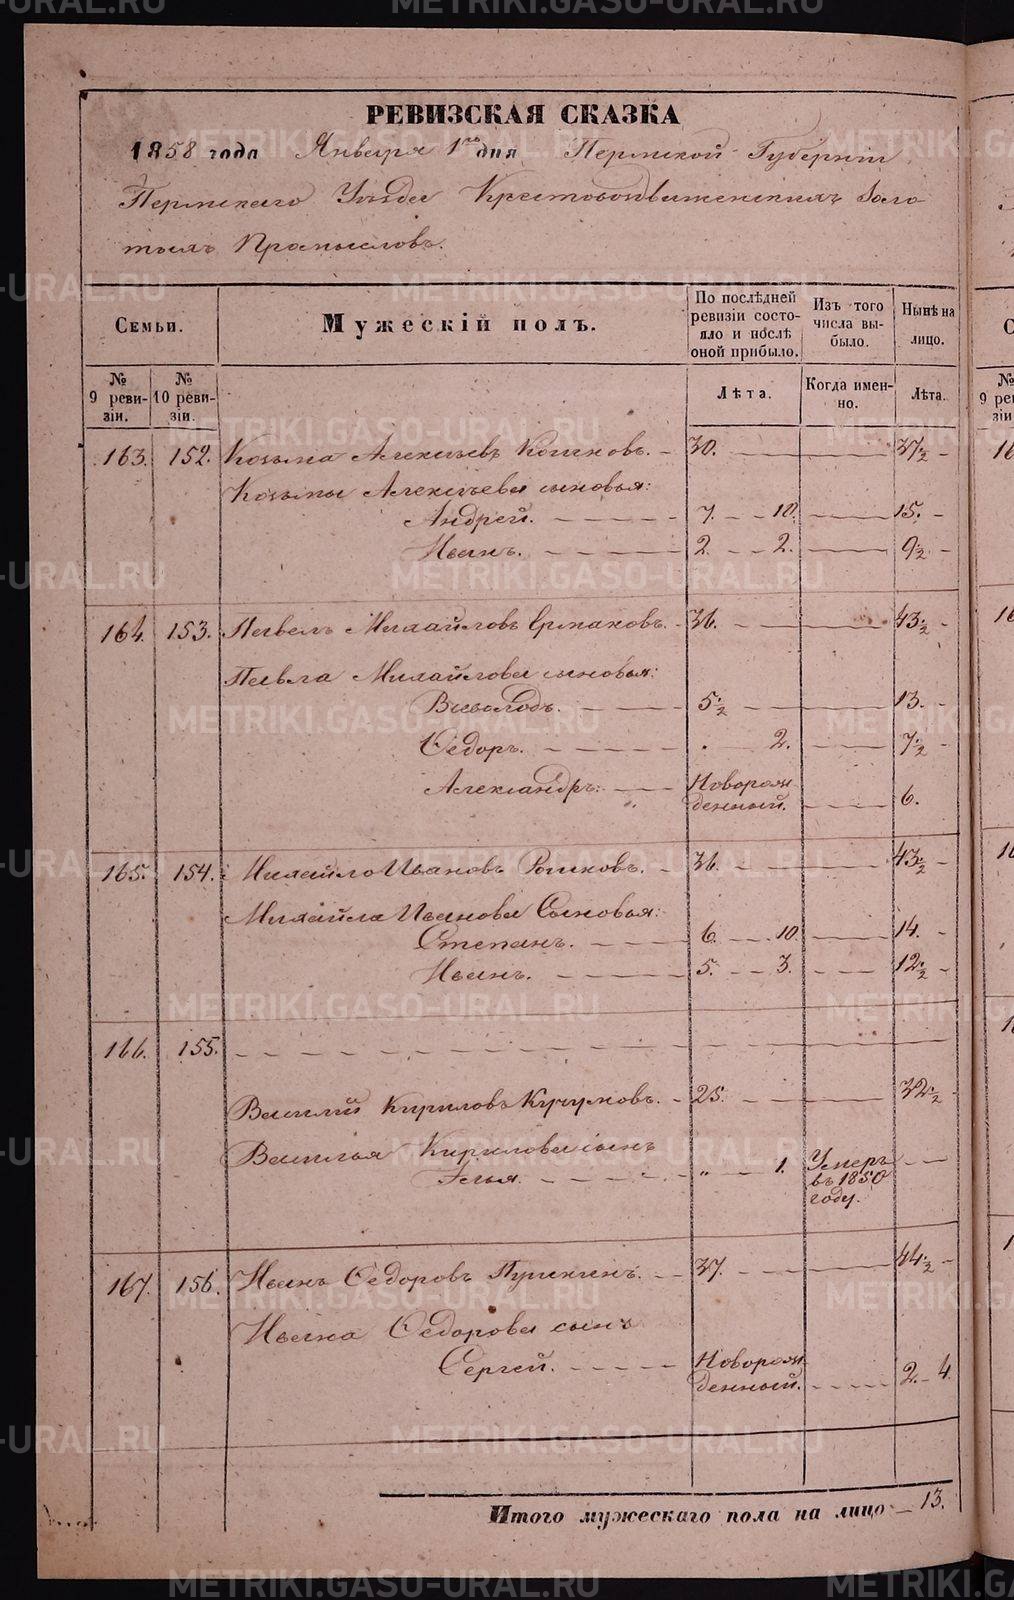 РЕВИЗСКАЯ СКАЗКА
1858 года Января 1го дня Пермской Губернiи
Пермскаго Уѣзда Крестовоздвиженскихъ Золо
тыхъ Промысловъ.
Семьи. Мужескiй полъ. По послѣдней ревизiи состояло и послѣ оной прибыло. Изъ того числа выбыло. Нынѣ на лицо.
№ 9 ревизiи. № 10 ревизiи. Лѣта. Когда именно. Лѣта.
163. 152. Козьма Алексѣевъ 30. 37½
Козьмы Алексѣева сыновья:
Андрей. 7. 10. 15.
Иванъ. 2. 2. 9½
164. 153. Павелъ Михайловъ Ермаковъ. 36. 43½
Павла Михайлова сыновья:
Всеволодъ. 5½ 13.
Ѳедоръ. 2. 7½
Александръ. Новорож
денный. 6.
165. 154. Михайло Ивановъ 36. 43½
Михайла Иванова Сыновья:
Степанъ. 6. 10. 14.
Иванъ. 5. 3. 12½
166. 155.
Василий Кириловъ 25. 32½
Василья Кирилова сынъ
Илья. " 1. Умеръ
въ 1850
году.
167. 156. Иванъ Ѳедоровъ Пушкинъ. 37. 44½
Ивана Ѳедорова сынъ
Сергей. Новорож
денный. 2. 4.
Итого мужескаго пола на лицо 13.
METRIKI.GASO-URAL.RU